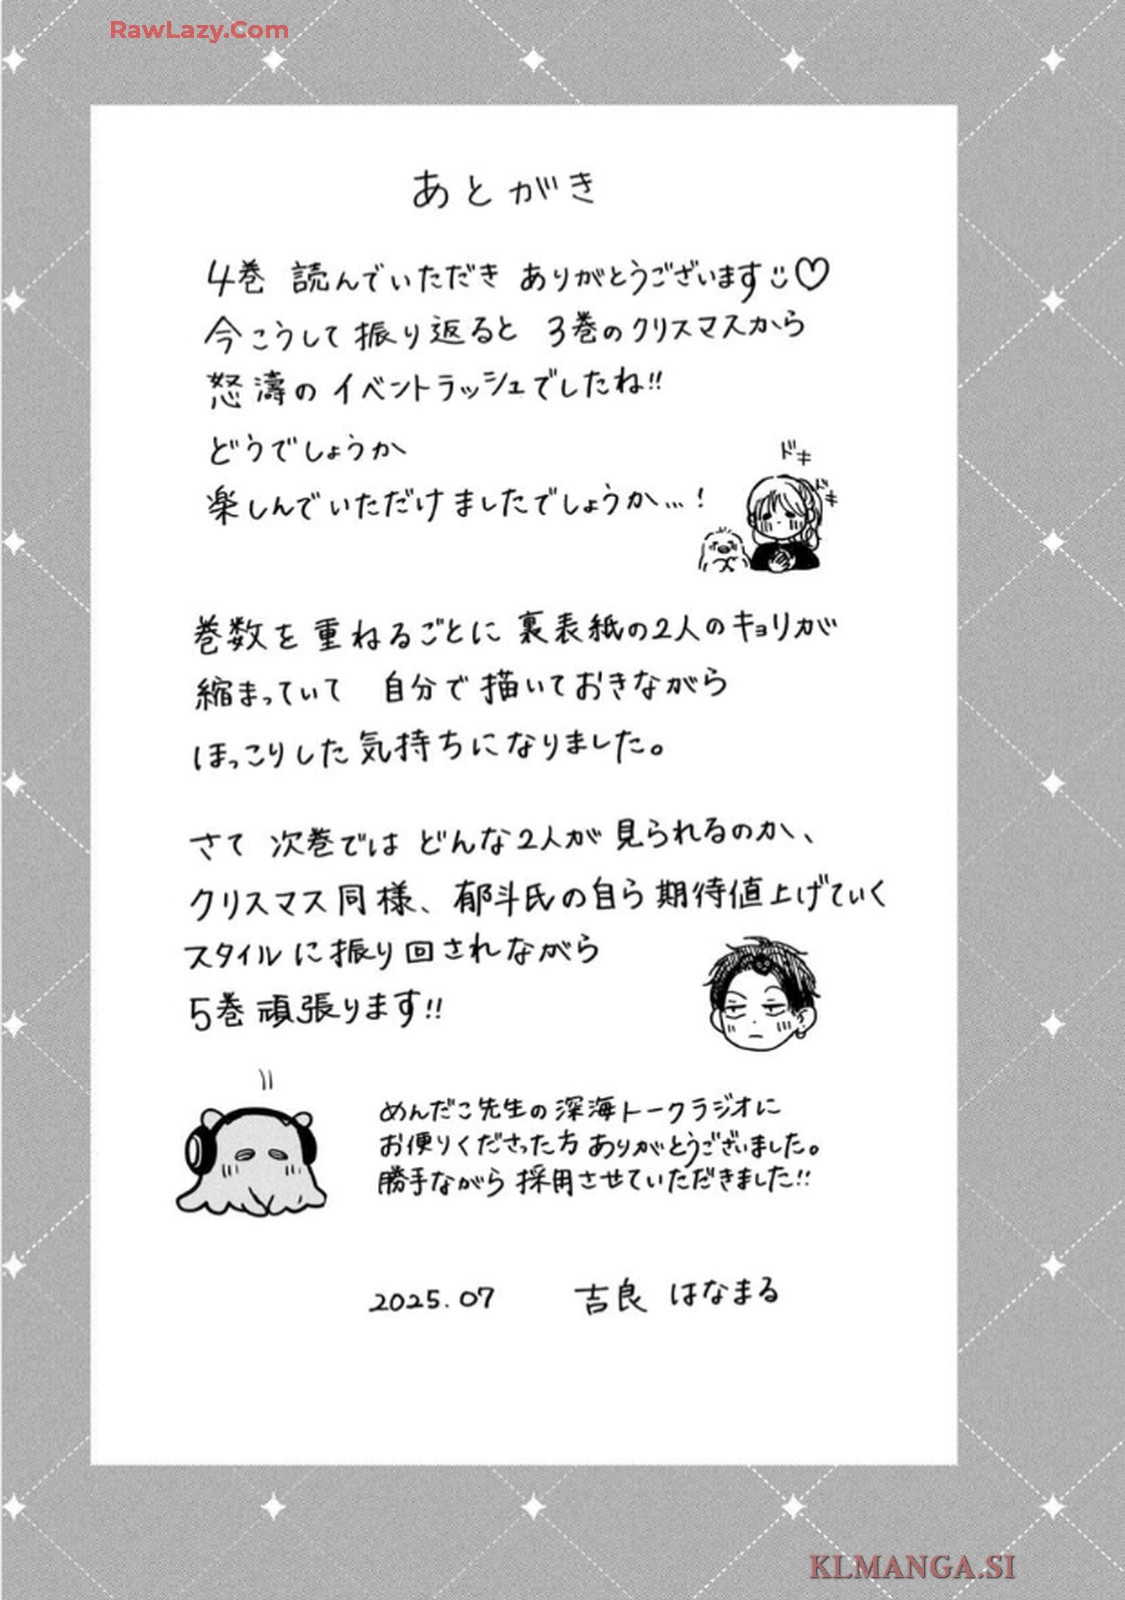 RawLazy.Com
あとがき
4巻 読んでいただき ありがとうございます♡
今こうして振り返ると 3巻のクリスマスから
怒濤のイベントラッシュでしたね!!
どうでしょうか
楽しんでいただけましたでしょうか…!
ドキ
ドキ
巻数を重ねるごとに裏表紙の2人のキョリが
縮まっていて 自分で描いておきながら
ほっこりした気持ちになりました。
さて 次巻では どんな2人が見られるのか、
クリスマス同様、郁斗氏の自ら期待値上げていく
スタイルに振り回されながら
5巻頑張ります!!
めんだこ先生の深海トークラジオに
お便りくださった方ありがとうございました。
勝手ながら採用させていただきました!!
2025.07 吉良 はなまる
KLMANGA.SI